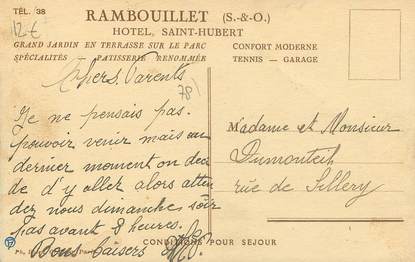 TÉL. 38
RAMBOUILLET (S.-&-O.)
HOTEL, SAINT-HUBERT
GRAND JARDIN EN TERRASSE SUR LE PARC
SPÉCIALITÉS PATISSERIE RENOMMÉE
CONFORT MODERNE
TENNIS — GARAGE
12 €
78
Chers Parents
Je ne pensais pas
pouvoir venir mais au
dernier moment on déci
de d'y aller alors atten
dez nous dimanche soir
pas avant 8 heures.
Bons baisers
Madame et Monsieur
Dumonteil
rue de Sillery
CONDITIONS POUR SEJOUR